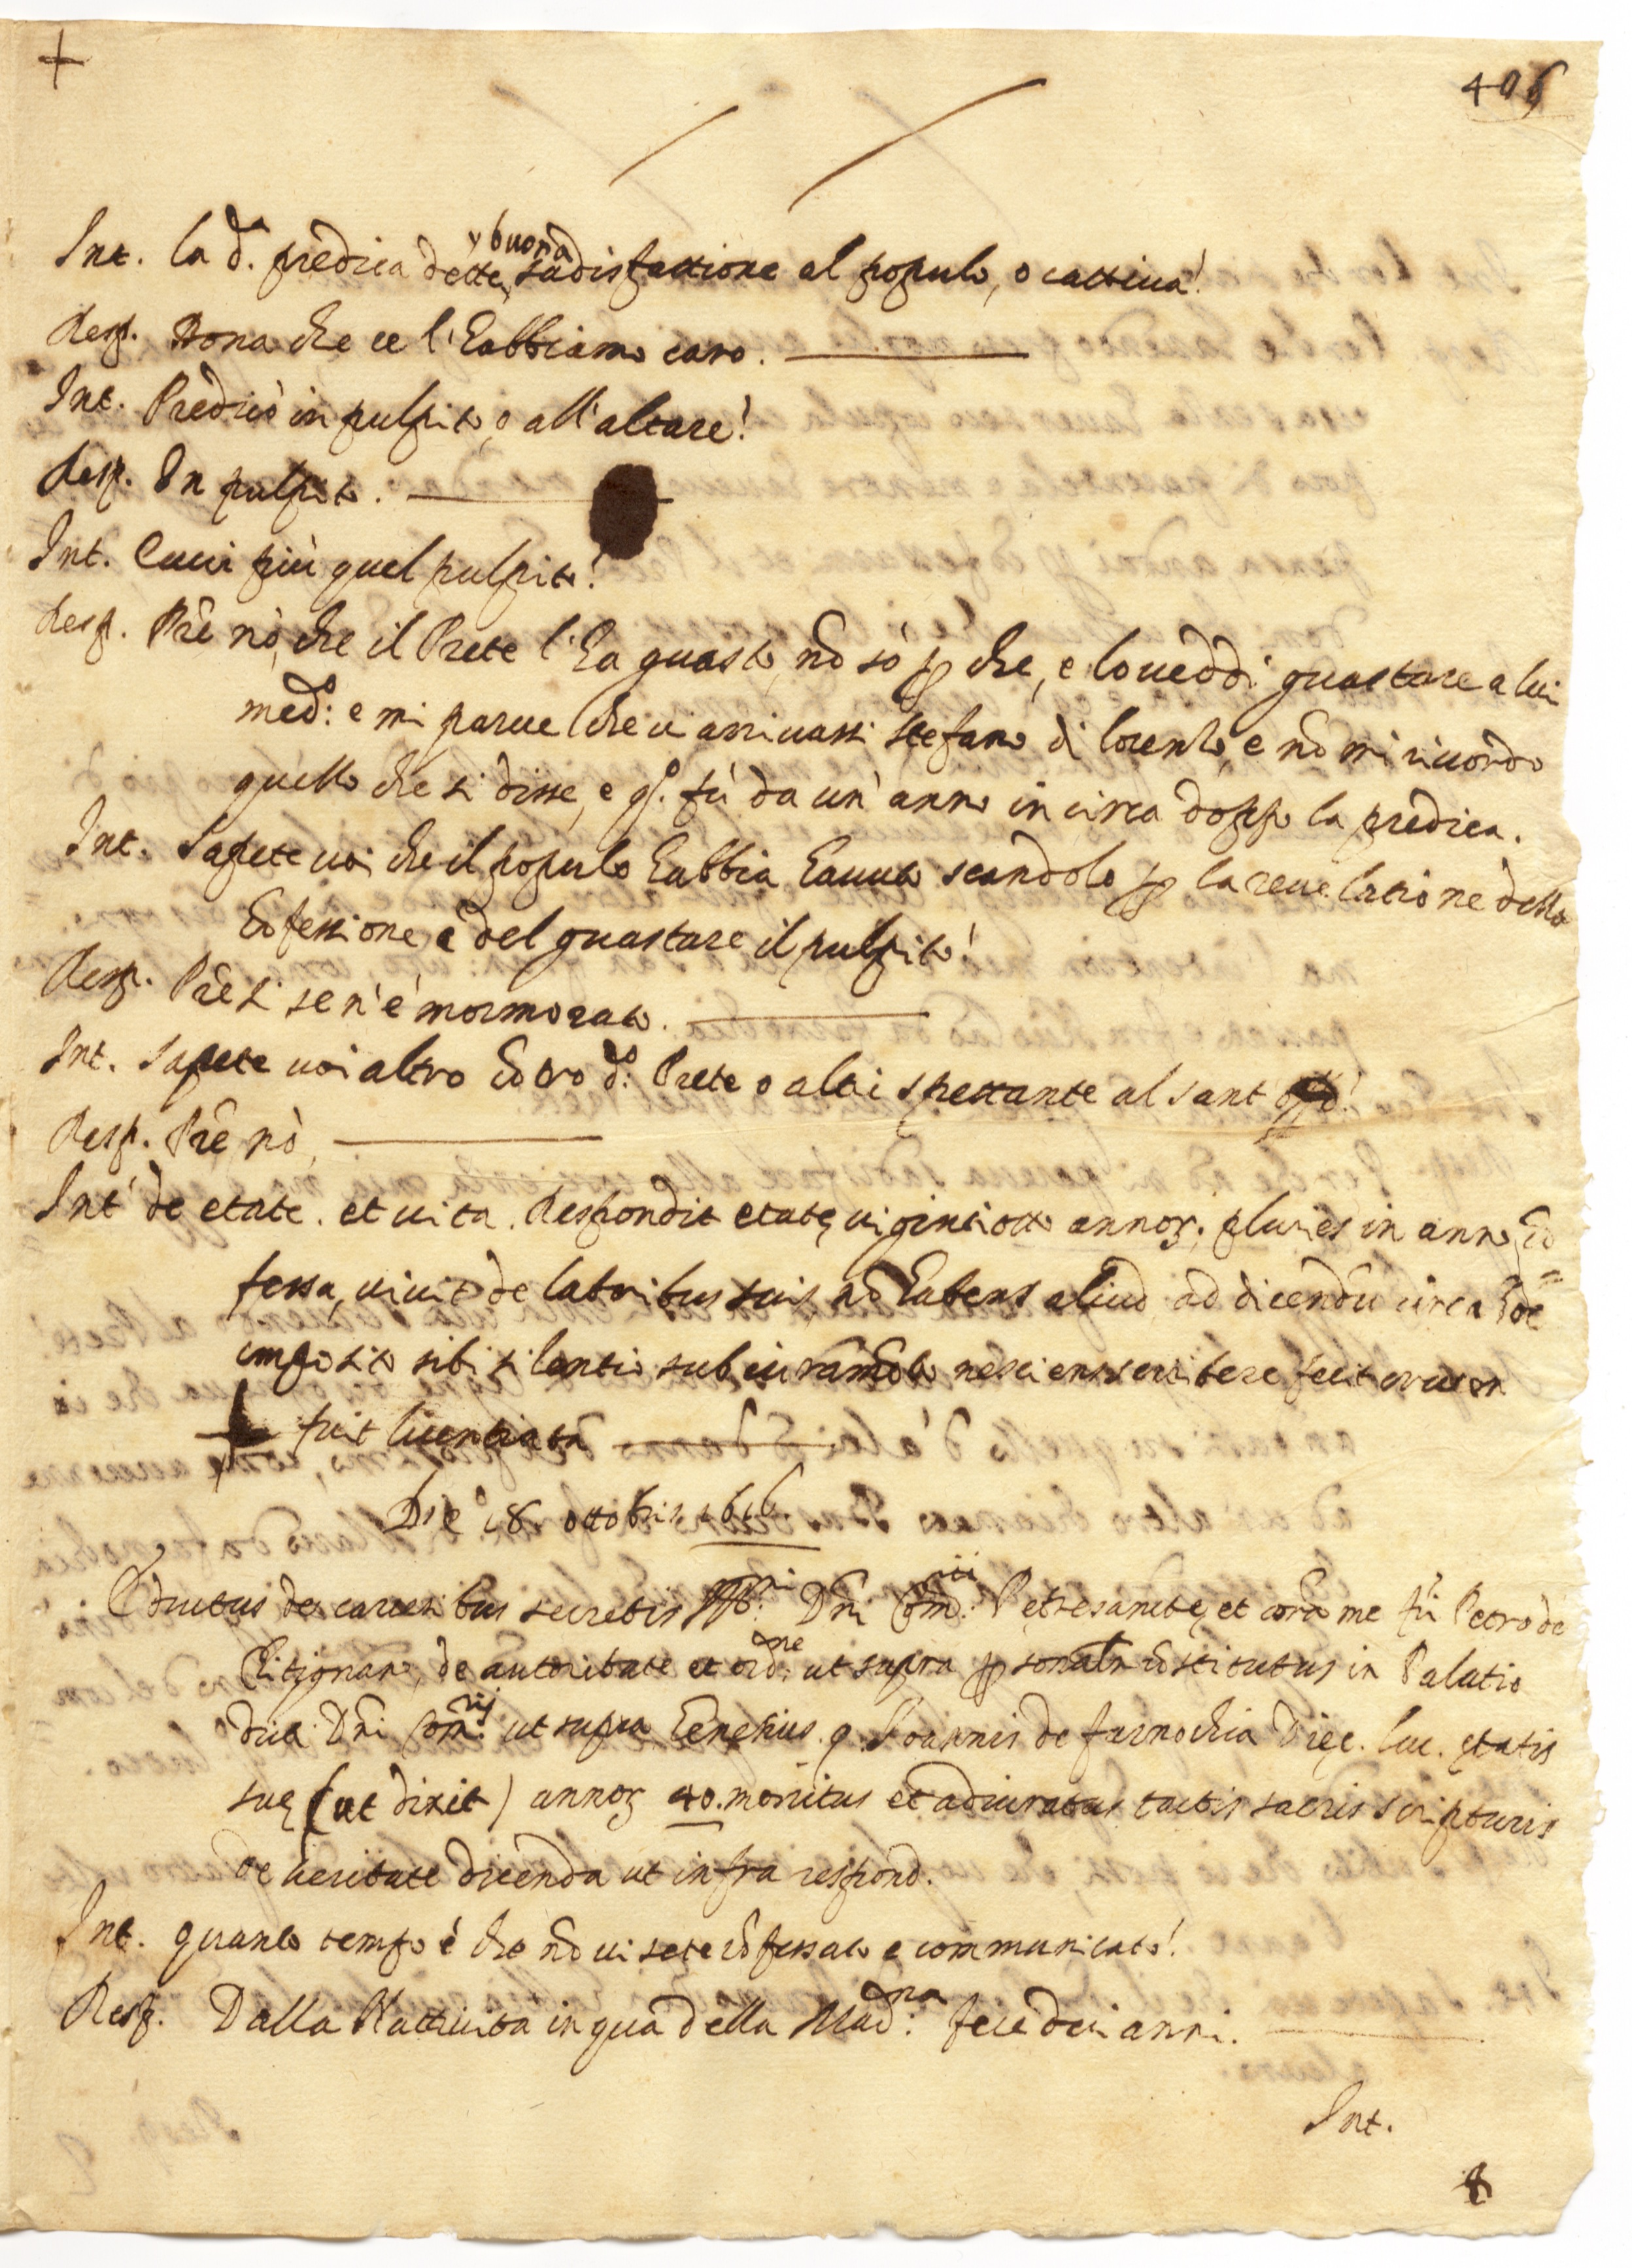 +
406
Int. la d.ª predica dette buona sadisfattione al populo, o cattiva?
Resp. Bona che ce l'habbiamo caro.
Int. Predicò in pulpito, o all'altare?
Resp. In pulpito.
Int. Cuui più quel pulpito?
Resp. Prê nò, che il Prete l'ha guasto, nõ sò p che, e lo veddi guastare a lui
med:º e mi parue che ui arriuassi Stefano di lorenzo, e nõ mi ricordo
quello che si disse, e qº. fù da un'anno in circa doppo la predica.
Int. Sapete uoi che il populo habbia hauuto scandolo p la reuelatione della
cõfessione, e del guastare il pulpito?
Resp. Prê si se n'è mormorato.
Int. Sapete uoi altro cõtro d:º Prete o altri spettante al sant'offº?
Resp. Prê nò,
Int de etate. et uita. Respondit etatẹ uigintiotto annoꝝ. pluries in anno cõ
fessa, uiuit de laboribus suis, nõ habens aliud ad dicendũ circa
imposito sibi silentio sub iuramẽto nesciens scribere fecit crucem
+ fuit licentiata
Die 18 ottobris 1616.
Eductus de carceribus secretis Dñi Comrii: Petresanctẹ, et corã me frê Petro de
Pitignano, de autoritate et ordne: ut supra psonalr cõstitutus in Palatio
dicti Dñi Comrij: ut supra q. Ioannis de farnochia Dięc. luc. ętatis
suę (ut dixit) annoꝝ 40. monitus et adiuratus tactis sacris scripturis
de ueritate dicenda ut infra respond.
Int. quanto tempo è che nõ ui sete cõfessato e communicato?
Resp. Dalla Nattiuita in qua della Mad:nna fece dui anni.
Int.
8